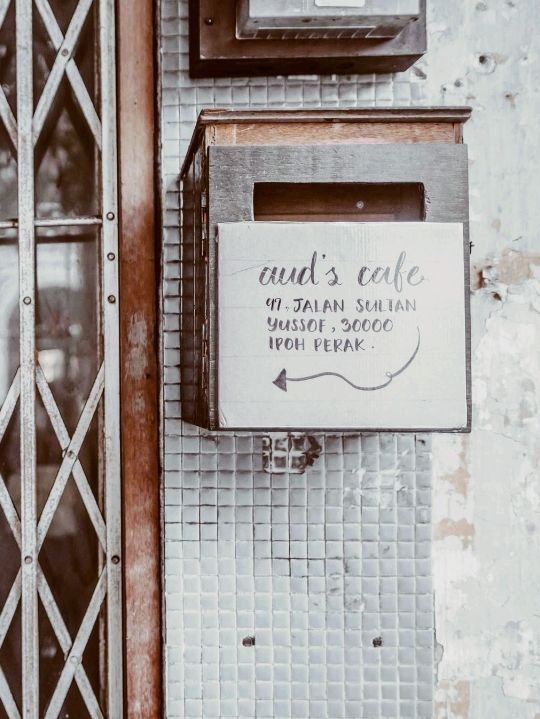 aud's cafe
97, JALAN SULTAN
YUSSOF, 30000
IPOH PERAK.